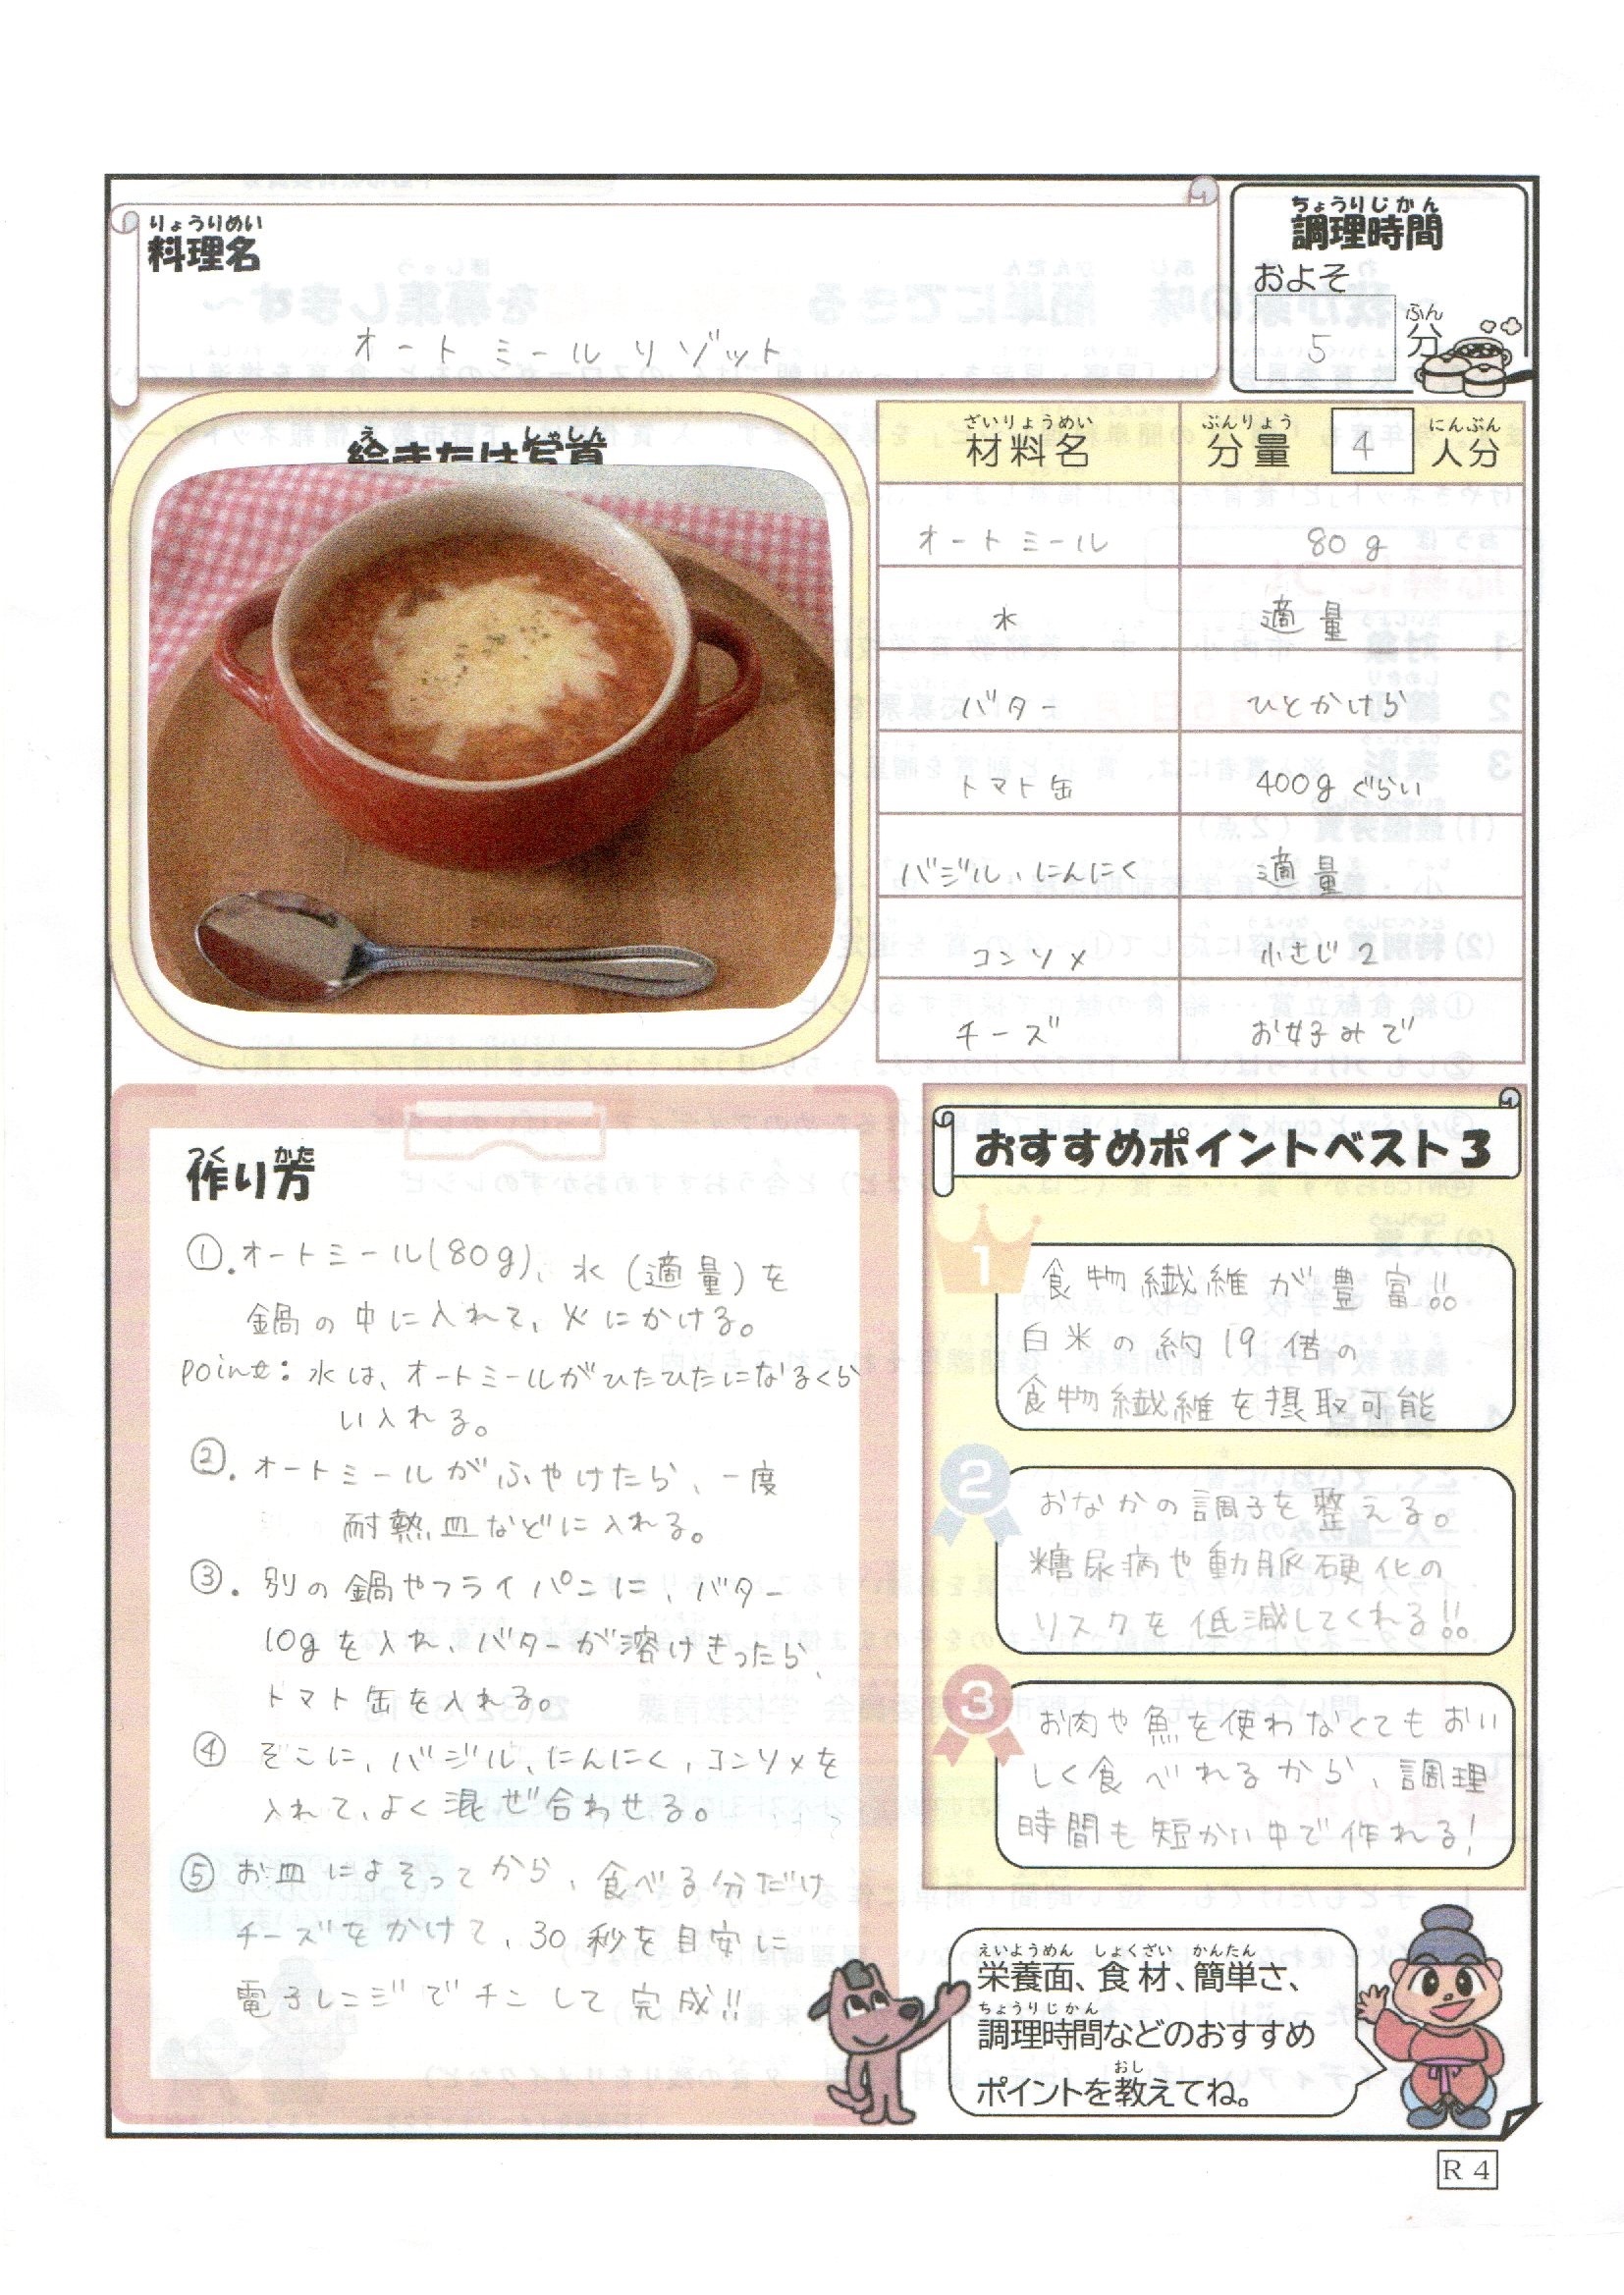 りょうりめい
料理名
オートミールリゾット
ちょうりじかん
調理時間
およそ
5 分
ふん
え しゃしん
絵または写真
ざいりょうめい ぶんりょう にんぶん
材料名 分量 4 人分
オートミール 80g
水 適量
バター ひとかけら
トマト缶 400gぐらい
バジル、にんにく 適量
コンソメ 小さじ2
チーズ お好みで
つく かた
作り方
①.オートミール(80g)、水(適量)を
鍋の中に入れて、火にかける。
Point:水は、オートミールがひたひたになるくら
い入れる。
②.オートミールがふやけたら、一度
耐熱皿などに入れる。
③.別の鍋やフライパンに、バター
10gを入れ、バターが溶けきったら、
トマト缶を入れる。
④ そこに、バジル、にんにく、コンソメを
入れて、よく混ぜ合わせる。
⑤ お皿によそってから、食べる分だけ
チーズをかけて、30秒を目安に
電子レンジでチンして完成!!
おすすめポイントベスト3
1
食物繊維が豊富!!
白米の約19倍の
食物繊維を摂取可能
2
おなかの調子を整える。
糖尿病や動脈硬化の
リスクを低減してくれる!!
3
お肉や魚を使わなくてもおい
しく食べれるから、調理
時間も短かい中で作れる!
えいようめん しょくざい かんたん
栄養面、食材、簡単さ、
ちょうりじかん
調理時間などのおすすめ
おし
ポイントを教えてね。
R4